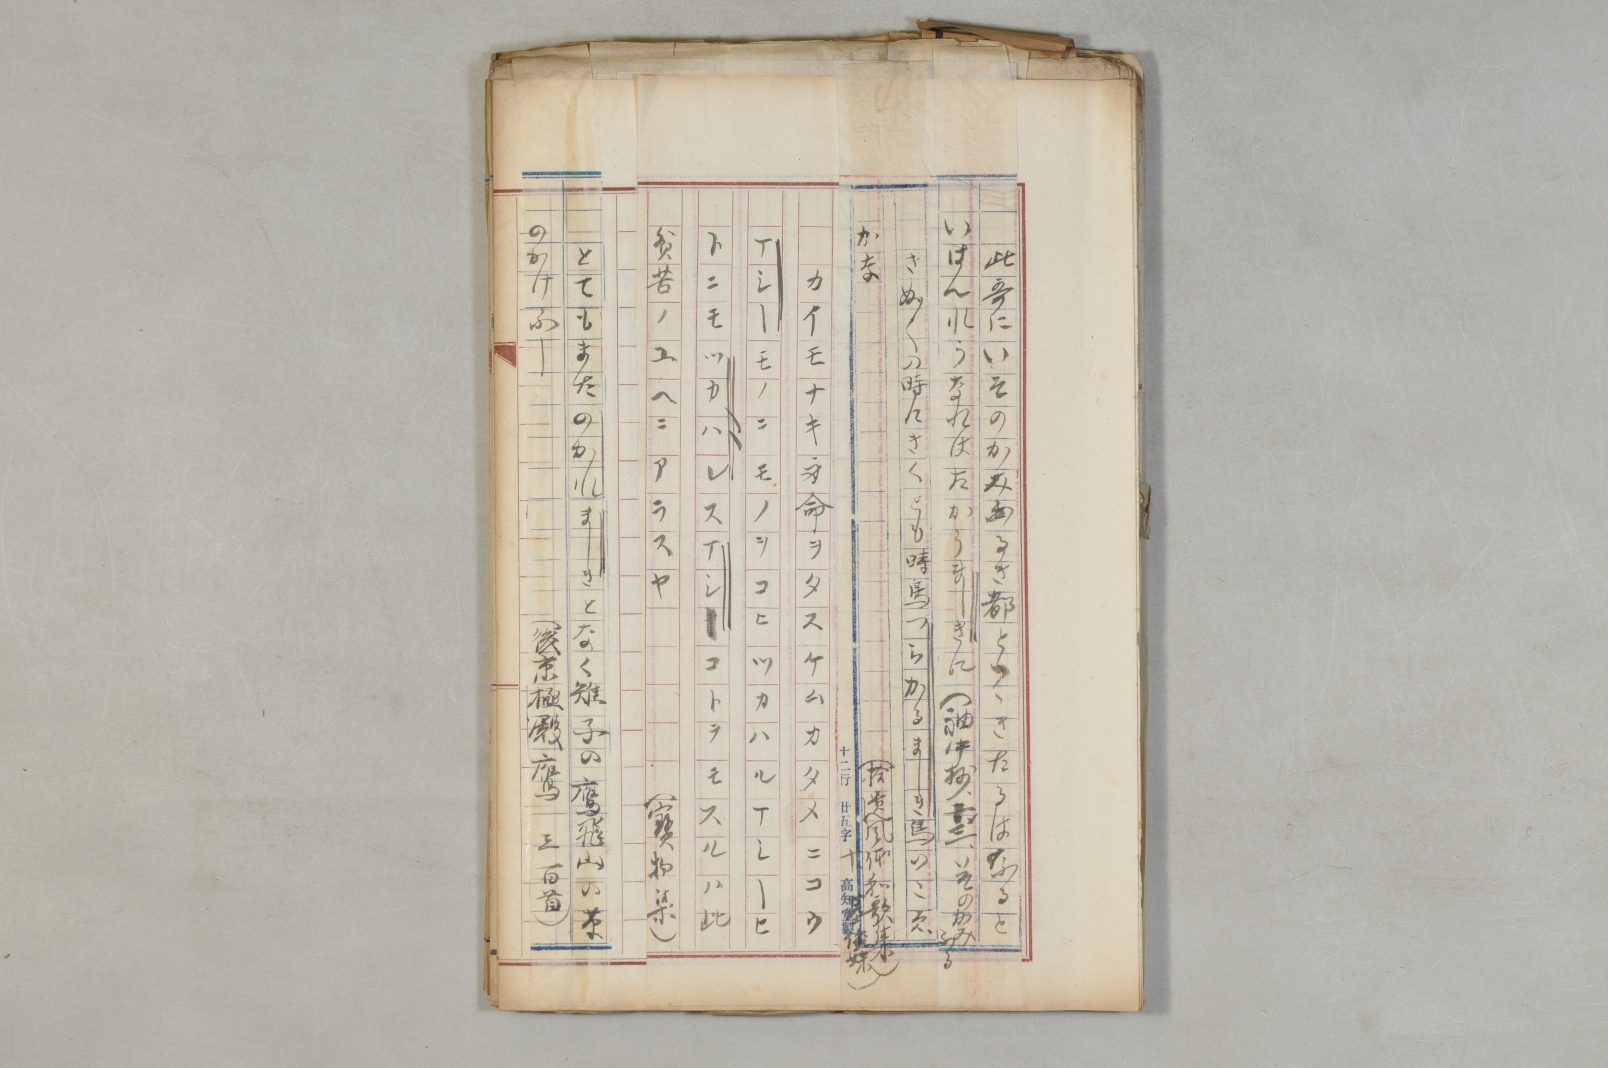 此哥にいそのかみふるき都とつゝきたるはふると
いはんれうなれはたかうましきに（袖中抄、三、いそのかみふる
きぬ〱の時にきくとも時鳥つらかるましき鳥のこゑ
かな（拾遺風体和歌集）
カイモナキ身命ヲタスケムカタメニコウ
マシーモノニモノヲコヒツカハルマシーヒ
トニモツカハレスマシーコトヲモスルハ此
貧苦ノユヘニアラスヤ（寶物集）
とてもまたのかれましきとなく雉子の鷹飛山の草
のかけふー（後京極殿鷹三百首）
十二行 廿五字 高知堂製